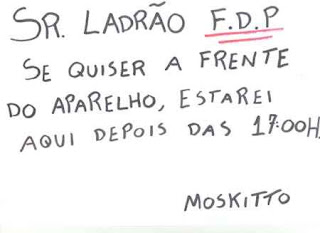 SR. LADRÃO F.D.P
SE QUISER A FRENTE
DO APARELHO, ESTAREI
AQUI DEPOIS DAS 17:00H
MOSKITTO